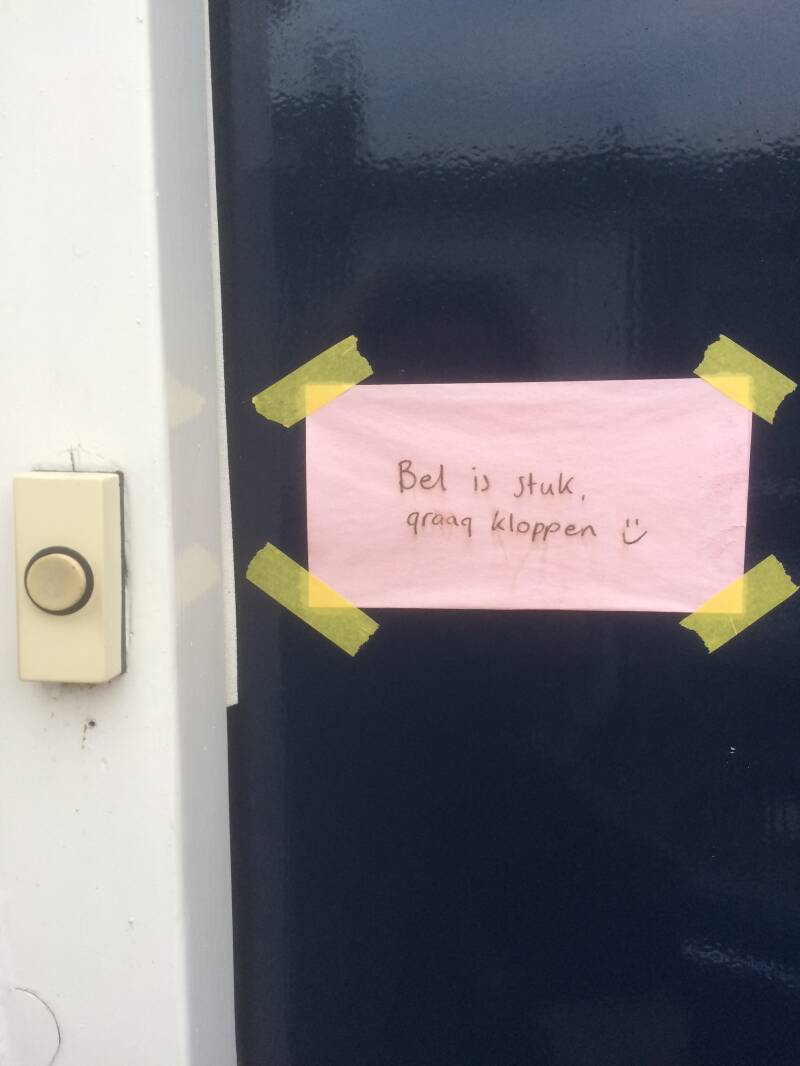 Bel is stuk,
graag kloppen :)